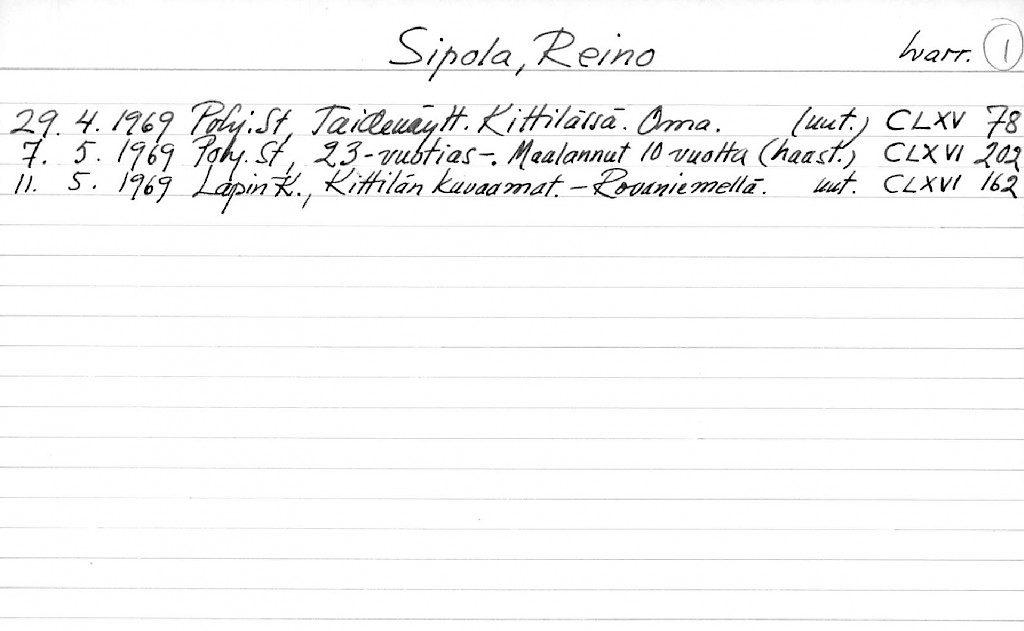 Sipola, Reino harr. 1
29. 4. 1969 Pohj. St, Taidenäytt. Kittilässä. Oma. (uut.) CLXV 78
7. 5. 1969 Pohj. St, 23-vuotias-. Maalannut 10 vuotta (haast.) CLXVI 202
11. 5. 1969 Lapin K., Kittilän kuvaamat. - Rovaniemellä. uut. CLXVI 162